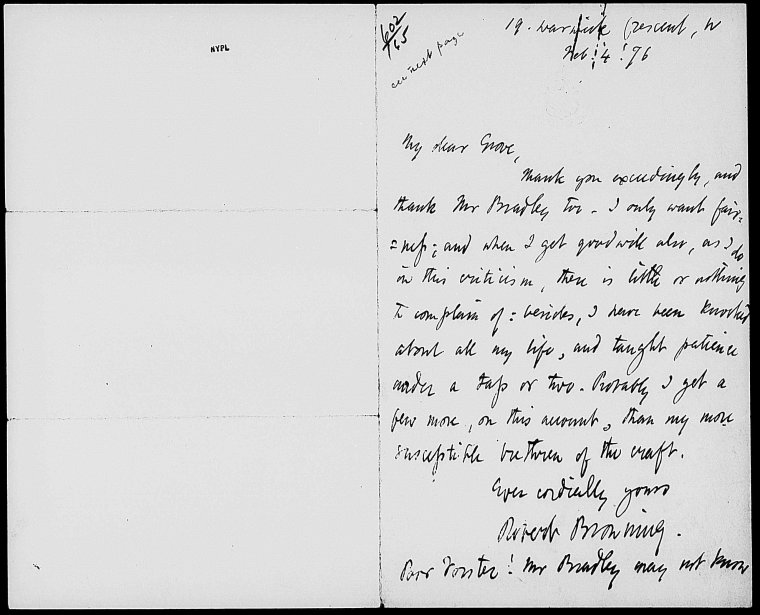 NYPL
602
65
see next page
19. Warwick Crescent, W
Feb. 4. '76
My dear Grove,
Thank you exceedingly, and
thank Mr Bradley too. I only want fair=
=ness; and when I get goodwill also, as I do
in this criticism, there is little or nothing
to complain of: besides, I have been knocked
about all my life, and taught patience
under a tap or two. Probably I get a
few more, on this account, than my more
susceptible brethren of the craft.
Ever cordially yours
Robert Browning.
Poor Forster! Mr Bradley may not know